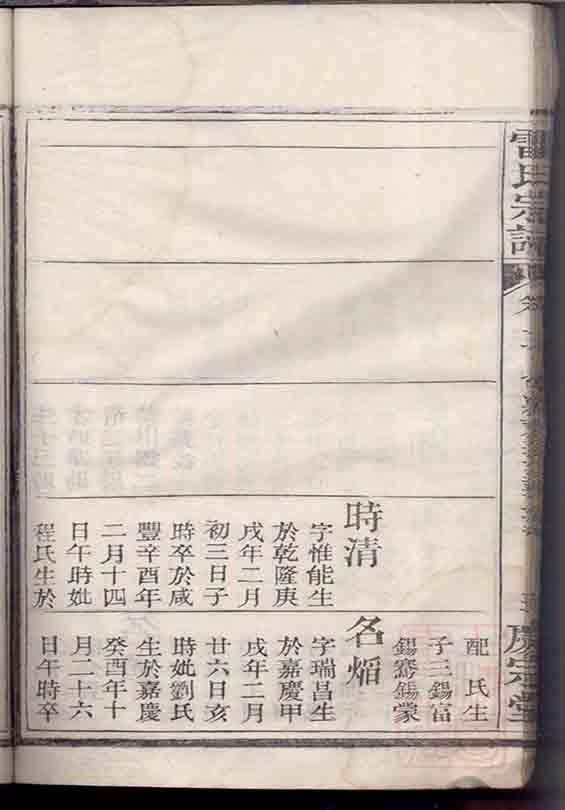 雷氏宗譜
慶宗堂
時清
字惟能生
於乾隆庚
戌年二月
初三日子
時卒於咸
豐辛酉年
二月十四
日午時妣
程氏生於
配氏生
子三錫富
錫鶱錫蒙
名煏
字瑞昌生
於嘉慶甲
戌年二月
廿六日亥
時妣劉氏
生於嘉慶
癸酉年十
月二十六
日午時卒